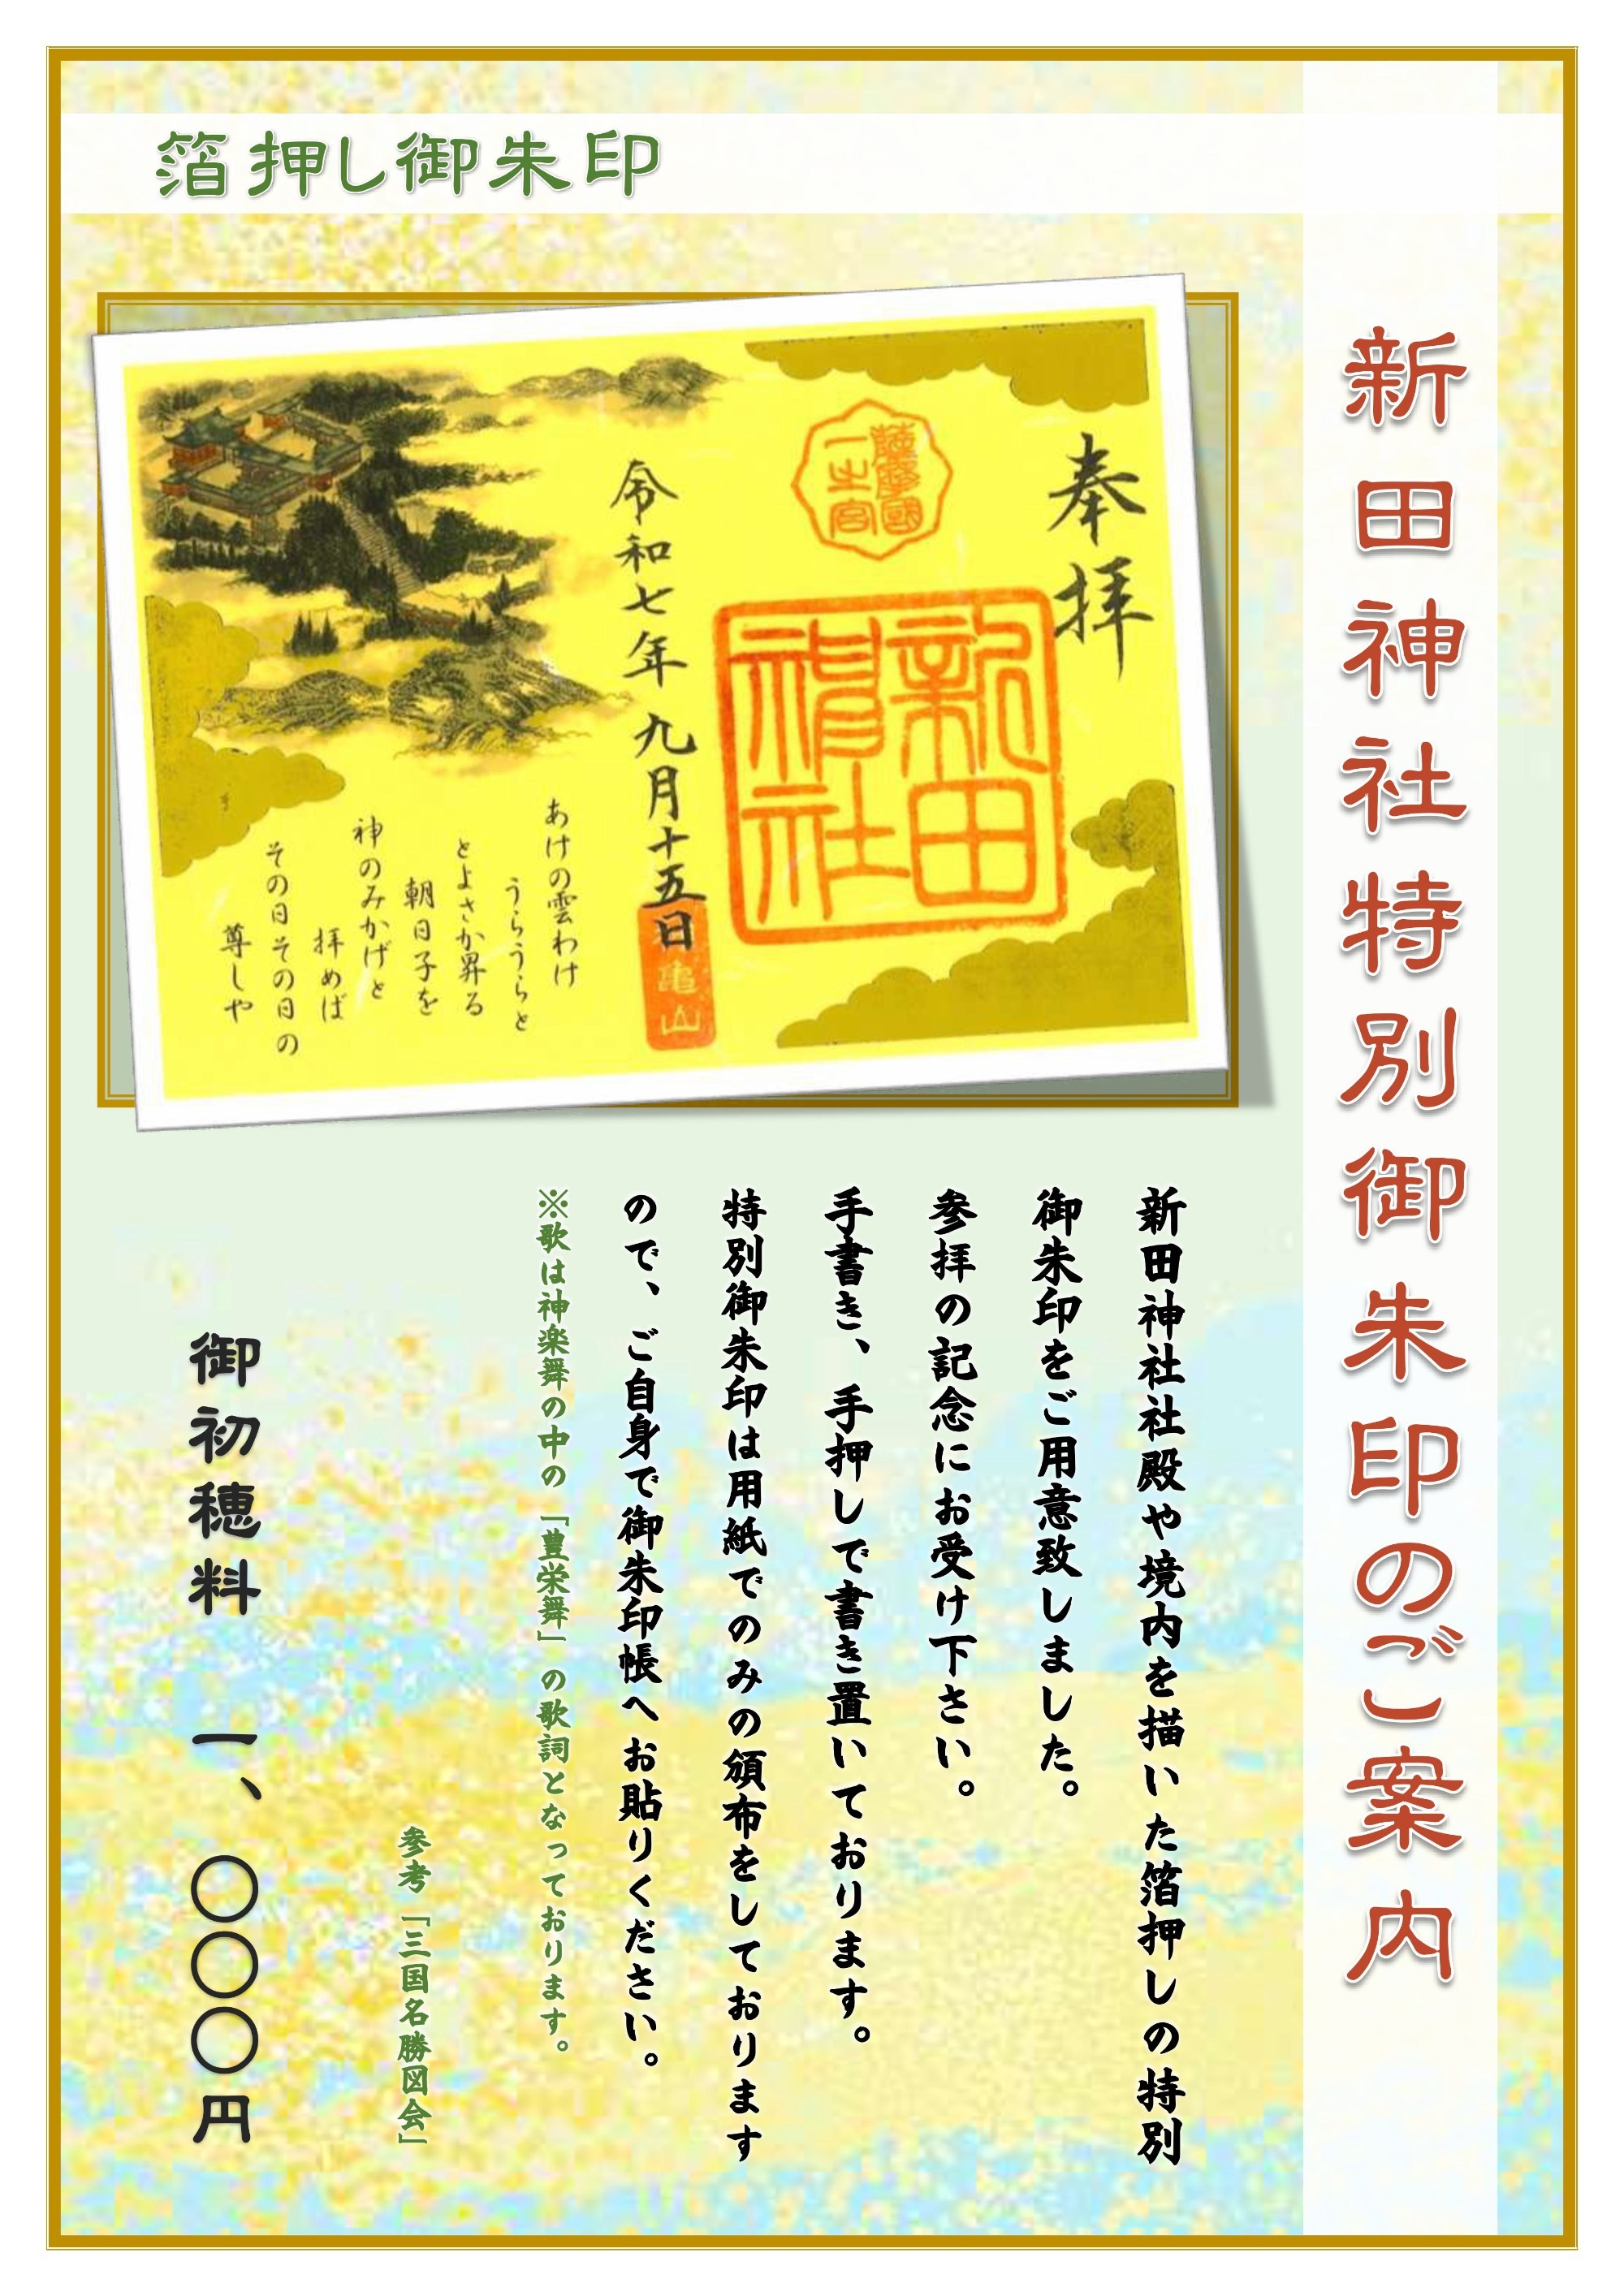 新田神社特別御朱印のご案内
箔押し御朱印
奉拝
薩摩國
一之宮
新田
神社
令和七年九月十五日
亀山
あけの雲わけ
うらうらと
とよさか昇る
朝日子を
神のみかげと
拝めば
その日その日の
尊しや
新田神社社殿や境内を描いた箔押しの特別
御朱印をご用意致しました。
参拝の記念にお受け下さい。
手書き、手押しで書き置いております。
特別御朱印は用紙でのみの頒布をしております
ので、ご自身で御朱印帳へお貼りください。
※歌は神楽舞の中の「豊栄舞」の歌詞となっております。
参考「三国名勝図会」
御初穂料 一、〇〇〇円